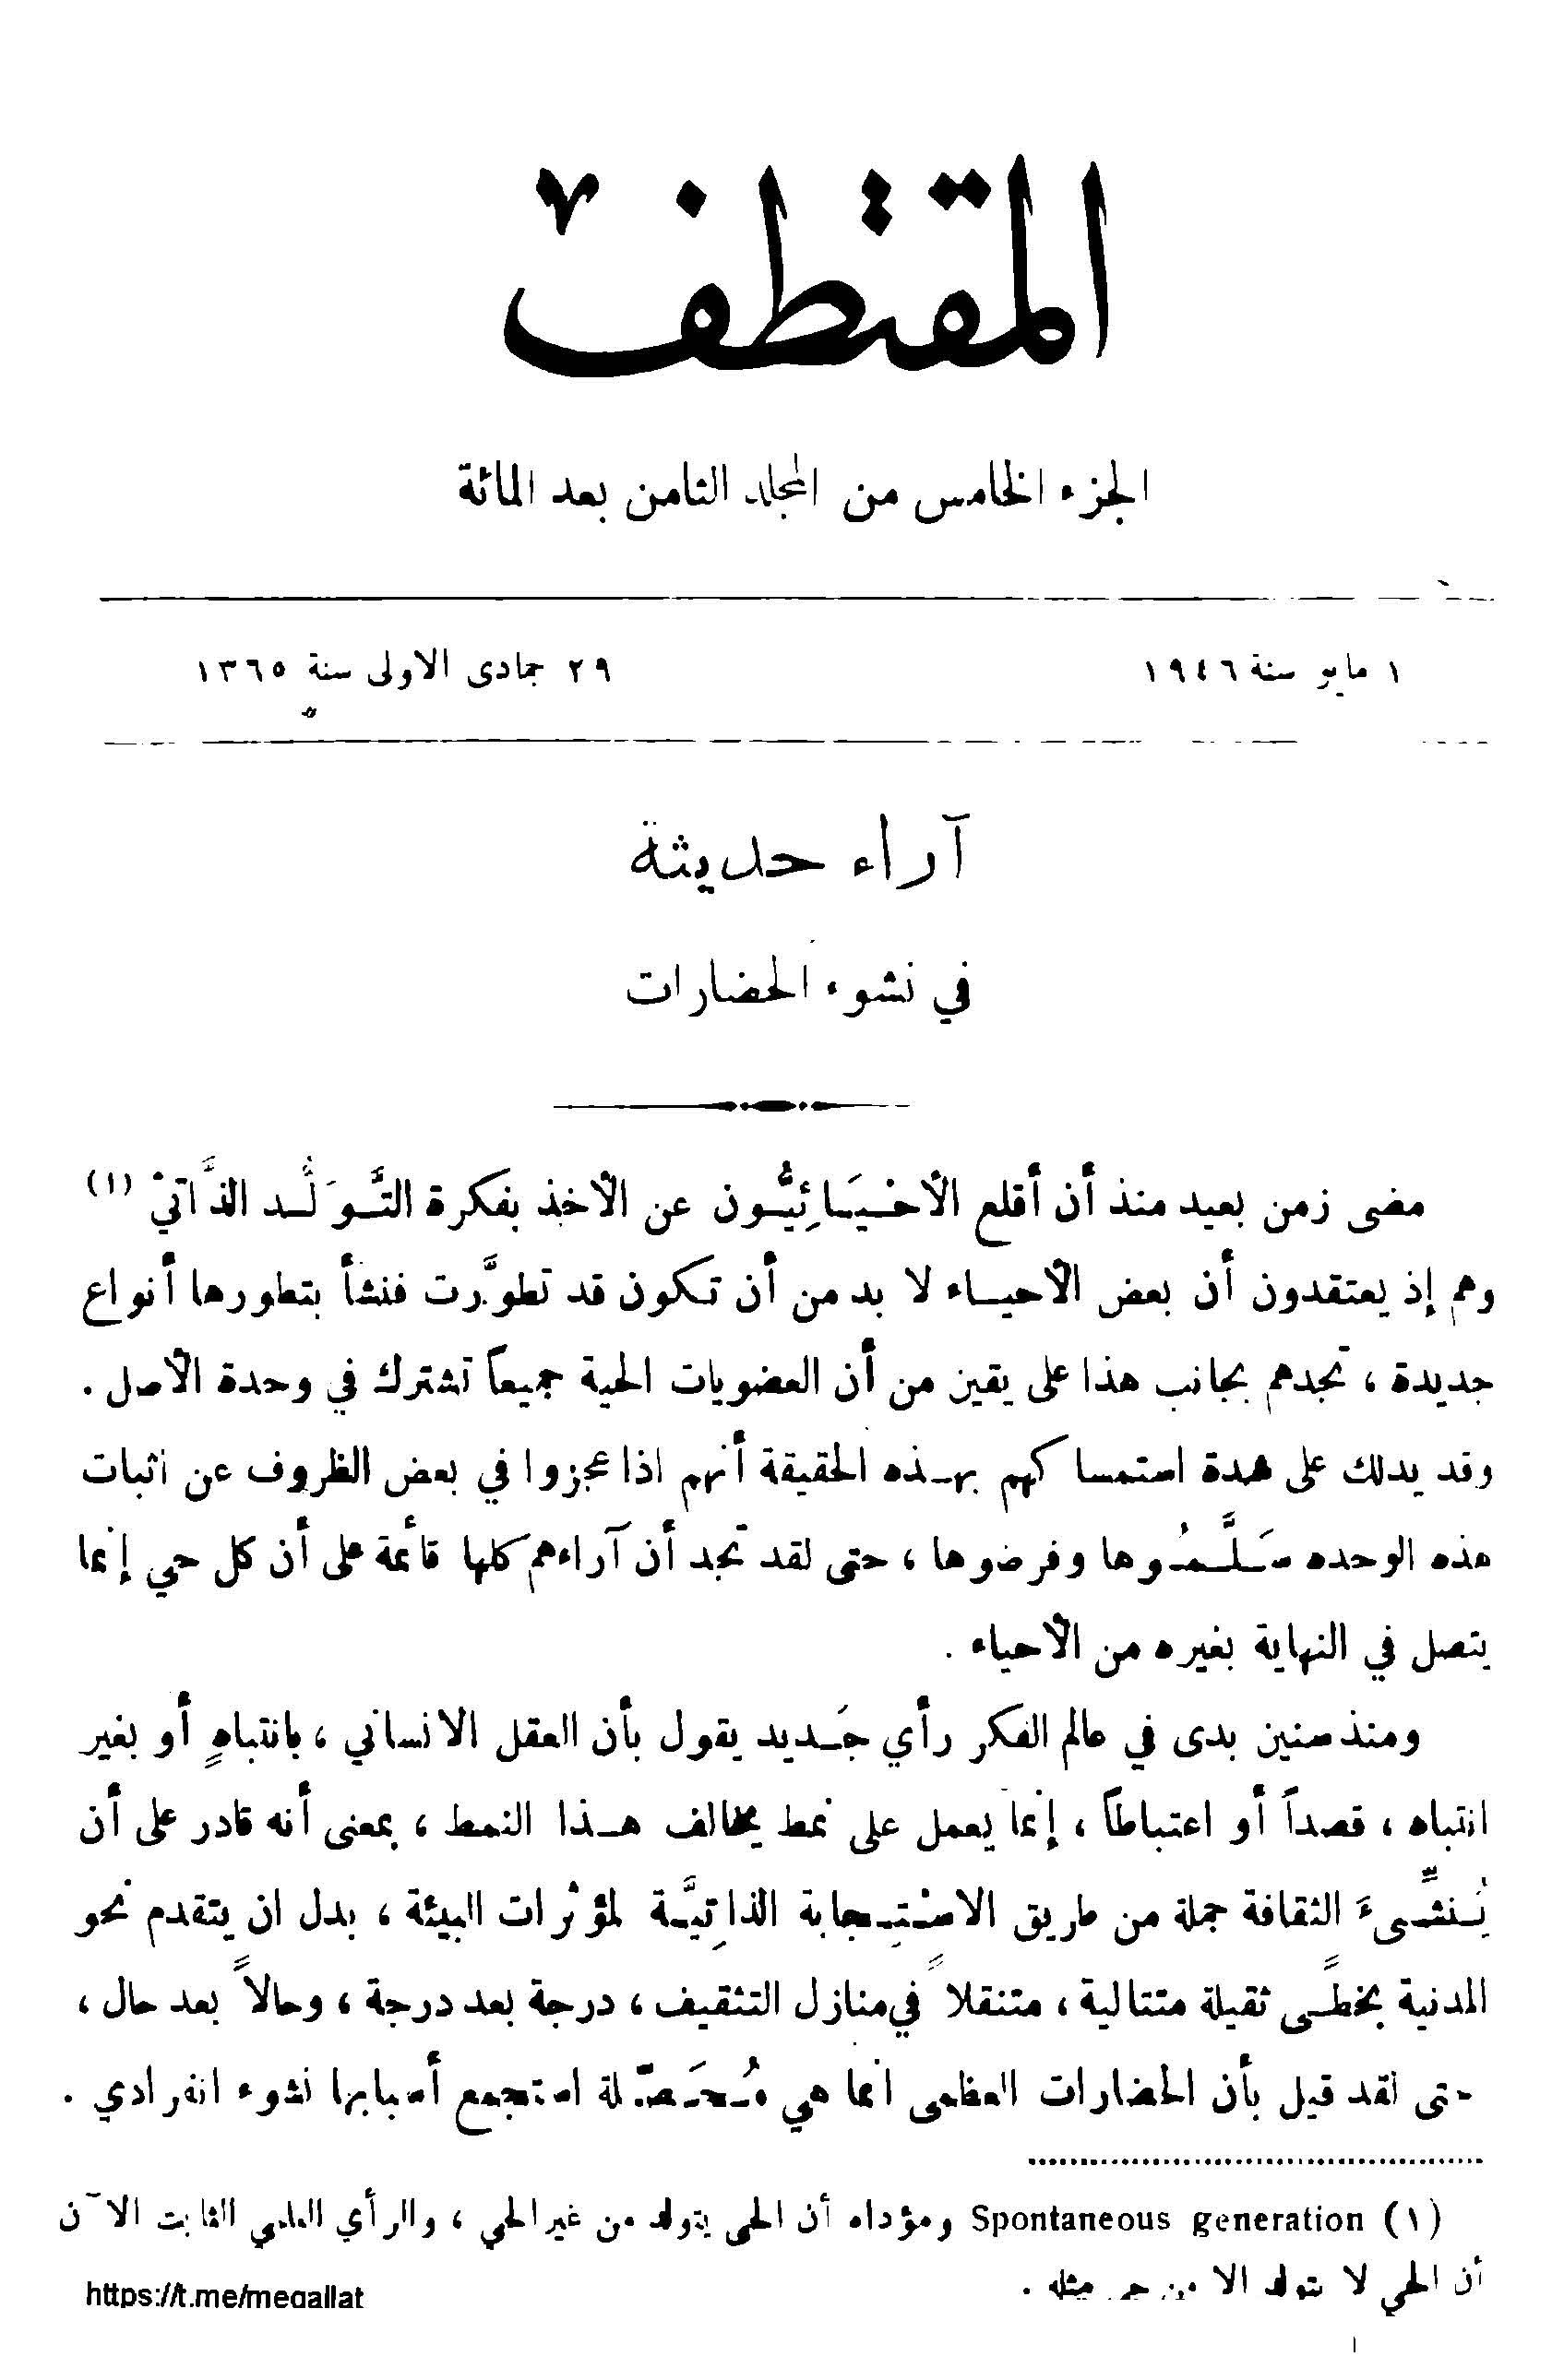 المقتطف
الجزء الخامس من المجلد الثامن بعد المائة
١ مايو سنة ١٩٤٦
٢٩ جمادى الاولى سنة ١٣٦٥
آراء حديثة
في نشوء الحضارات
مضى زمن بعيد منذ أن أقلع الأحْيَائِيُّون عن الأخذ بفكرة التَّوَلُّد الذَّاتيْ (١)
وهم إذ يعتقدون أن بعض الأحياء لا بد من أن تكون قد تطوَّرت فنشأ بتطورها أنواع
جديدة ، تجدهم بجانب هذا على يقين من أن العضويات الحية جميعاً تشترك في وحدة الأصل .
وقد يدلك على شدة استمساكهم بهذه الحقيقة أنهم اذا عجزوا في بعض الظروف عن اثبات
هذه الوحده سَلَّمُوها وفرضوها ، حتى لقد تجد أن آراءهم كلها قائمة على أن كل حي إنما
يتصل في النهاية بغيره من الأحياء .
ومنذ سنين بدى في عالم الفكر رأي جَديد يقول بأن العقل الانساني ، بانتباهٍ أو بغير
انتباه ، قصداً أو اعتباطاً ، إنما يعمل على نمط يخالف هذا النمط ، بمعنى أنه قادر على أن
يُنشِّىءَ الثقافة جملة من طريق الاسْتِجابة الذاتِيَّة لمؤثرات البيئة ، بدل ان يتقدم نحو
المدنية بخطًى ثقيلة متتالية ، متنقلاً في منازل التثقيف ، درجة بعد درجة ، وحالاً بعد حال ،
حتى لقد قيل بأن الحضارات العظمى انما هي مُحَصّلة استجمع أسبابها نشوء انفرادي .
(١) Spontaneous generation ومؤداه أن الحى يتولد من غير الحي ، والرأي العلمي الثابت الآن
أن الحي لا يتولد الا من حي مثله .
https://t.me/megallat
١